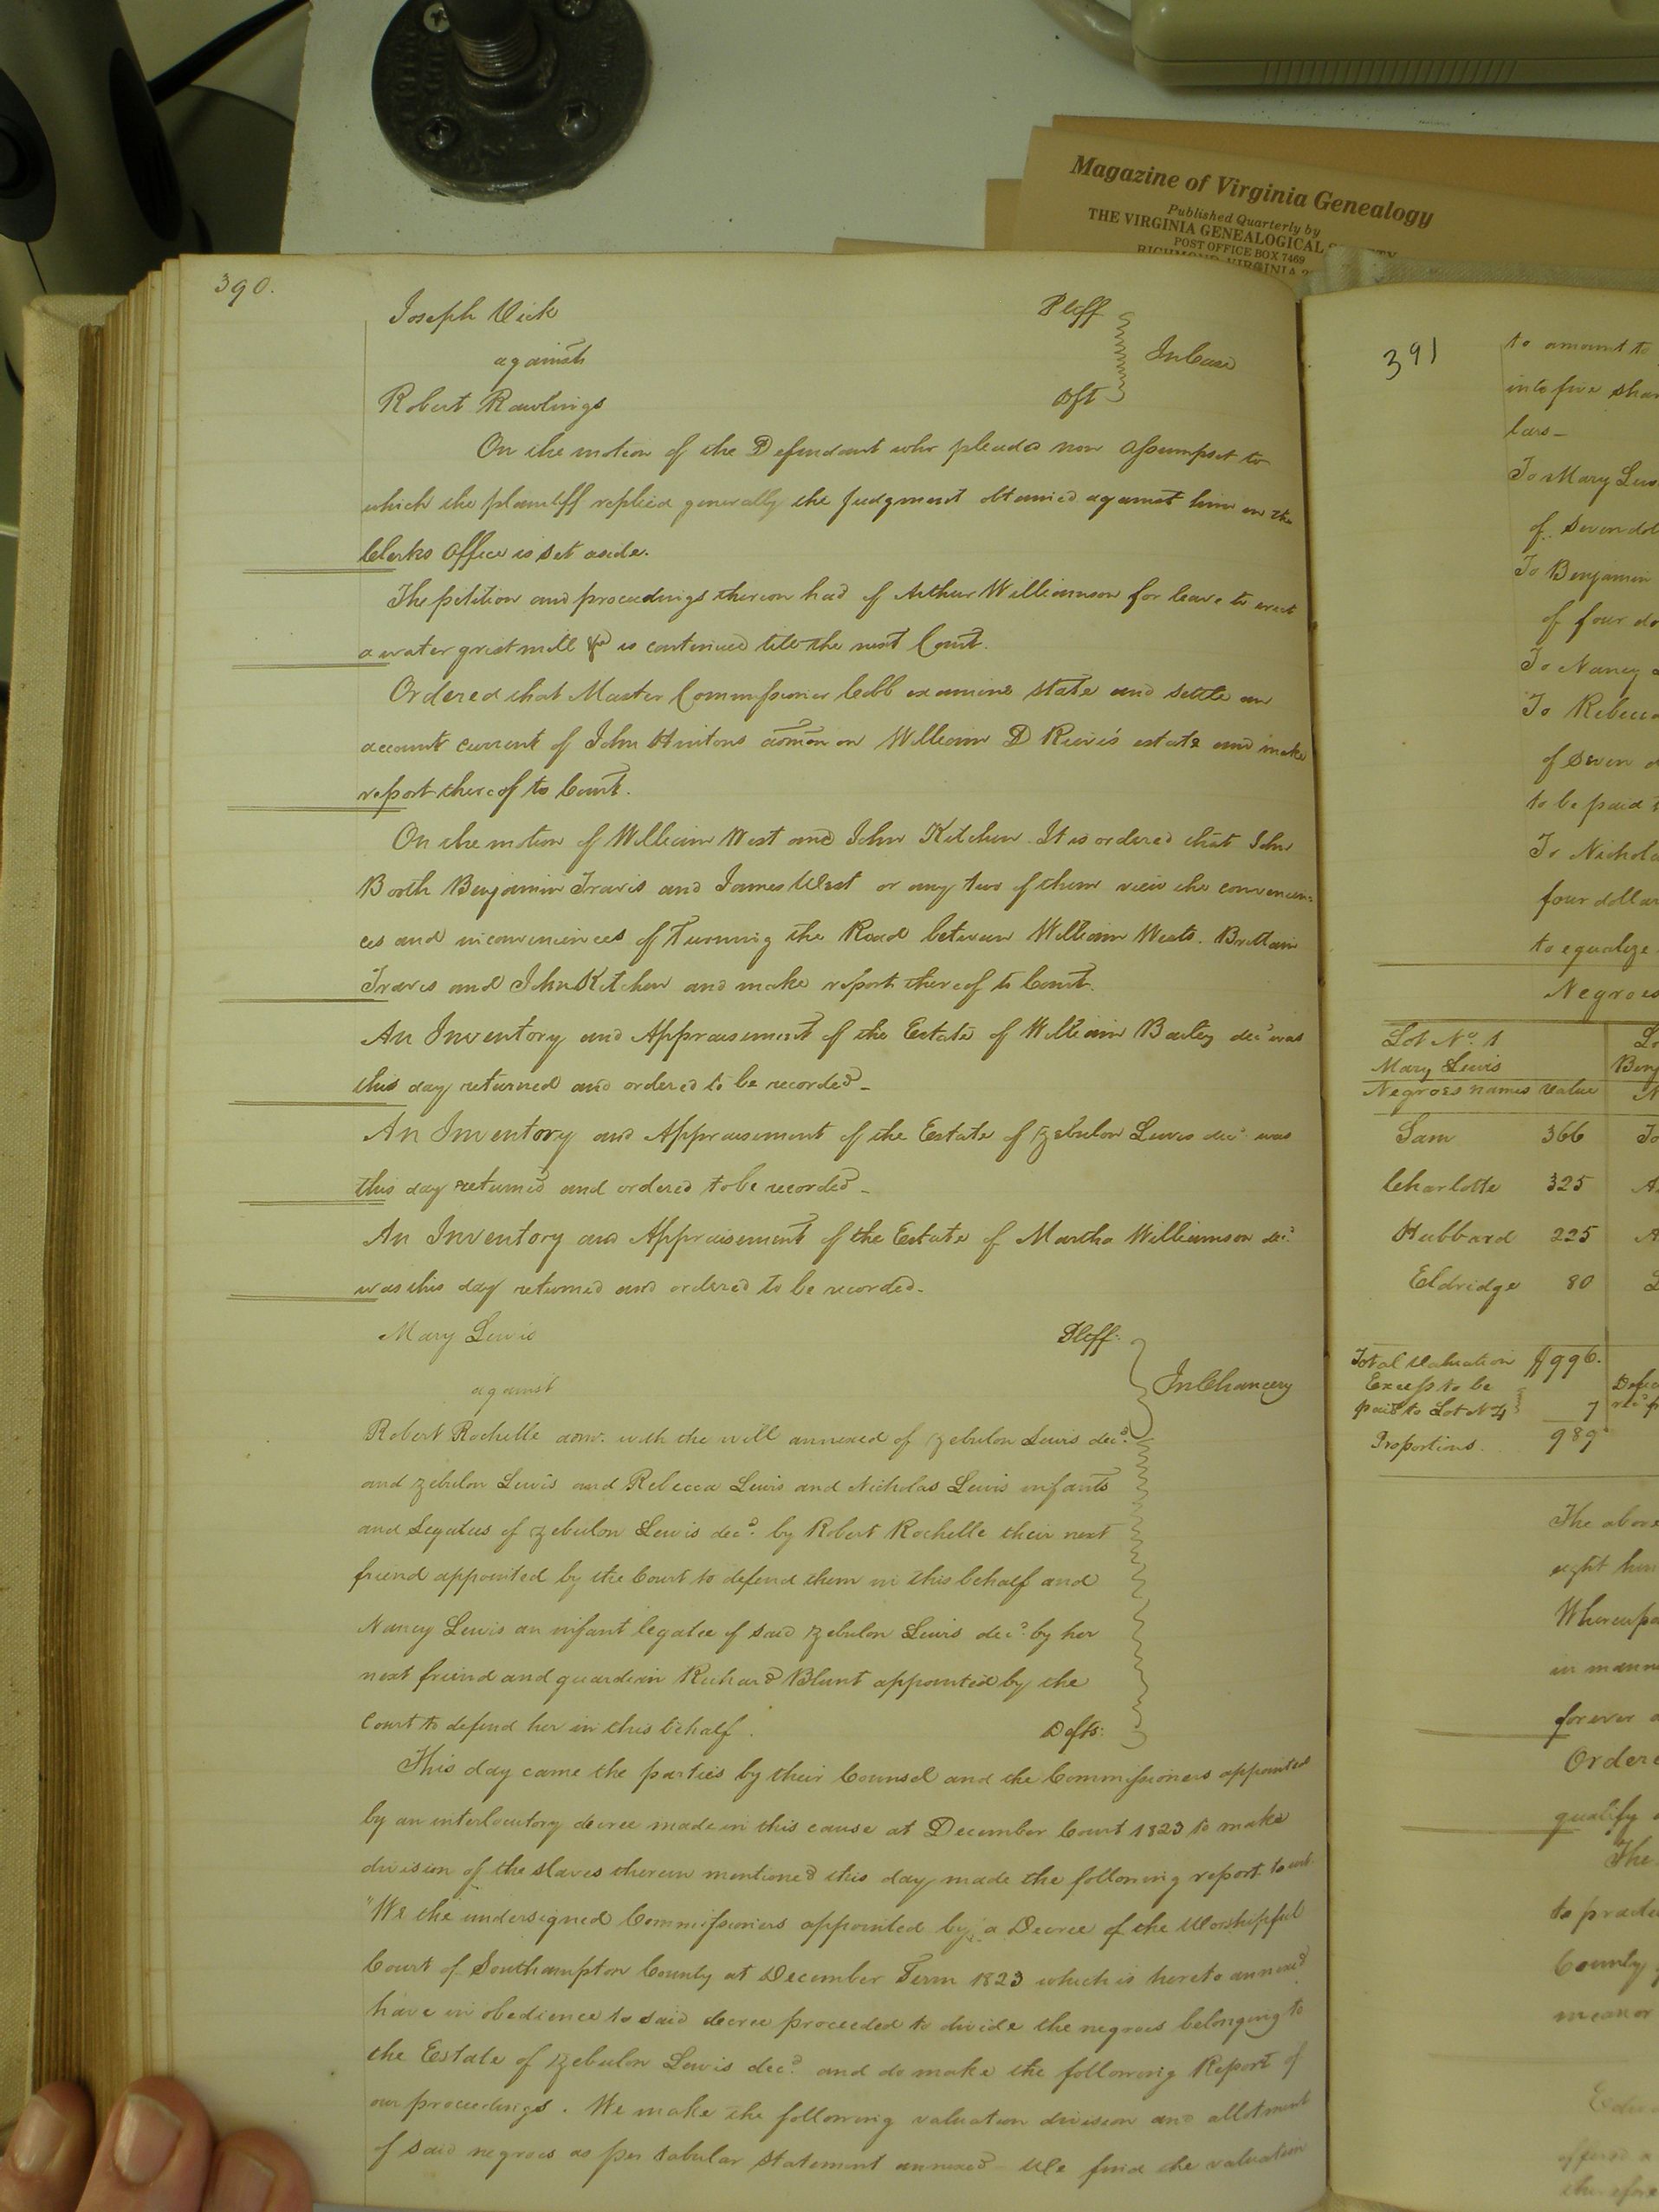 Magazine of Virginia Genealogy
Published Quarterly by
THE VIRGINIA GENEALOGICAL
POST OFFICE BOX 7469
RICHMOND, VIRGINIA
390.
Joseph Vick Plff
against In Case
Robert Rawlings Dft
On the motion of the Defendant who pleaded non assumpsit to
which the plaintiff replied generally the judgment obtained against him in the
Clerks office is set aside.
The petition and proceedings thereon had of Arthur Williamson for leave to erect
a water grist mill &c is continued till the next Court.
Ordered that Master Commissioner Cobb examine state and settle an
account current of John Hintons admon on William D Reives estate and make
report thereof to Court.
On the motion of William West and John Kitchen It is ordered that John
Booth Benjamin Travis and James West or any two of them view the convenien-
ces and inconveniences of Turning the Road between William Wests. Brittain
Travis and John Kitchen and make report thereof to Court.
An Inventory and Appraisement of the Estate of William Bailey decd was
this day returned and ordered to be recorded_
An Inventory and Appraisement of the Estate of Zebulon Lewis decd was
this day returned and ordered to be recorded_
An Inventory and Appraisement of the Estate of Martha Williamson decd
was this day returned and ordered to be recorded.
Mary Lewis Plff.
against In Chancery
Robert Rochelle admr. with the will annexed of Zebulon Lewis decd.
and Zebulon Lewis and Rebecca Lewis and Nicholas Lewis infants
and Legatees of Zebulon Lewis decd. by Robert Rochelle their next
friend appointed by the Court to defend them in this behalf and
Nancy Lewis an infant legatee of said Zebulon Lewis decd. by her
next friend and guardian Richard Blunt appointed by the
Court to defend her in this behalf. Defts.
This day came the parties by their Counsel and the Commissioners appointed
by an interlocutory decree made in this cause at December Court 1823 to make
division of the slaves therein mentioned this day made the following report to wit.
"We the undersigned Commissioners appointed by a Decree of the Worshipful
Court of Southampton County at December Term 1823 which is hereto annexed
have in obedience to said decree proceeded to divide the negroes belonging to
the Estate of Zebulon Lewis decd. and do make the following Report of
our proceedings. We make the following valuation division and allotment
of said negroes as per tabular statement annexed We find the valuation
391
to amount to
into five
lars_
To Mary
of seven
To Benjamin
of four
To Nancy
To
of seven
to be paid
To
four
to equalize
Negroes
Lot No. 1
Mary Lewis
Negroes names Value
Sam 366
Charlotte 325
Hubbard 225
Eldridge 80
Total Valuation $996.
Excess to be
paid to Lot No 4 7
Proportions 989
The above
eight
in
forever
qualify
The
to
County